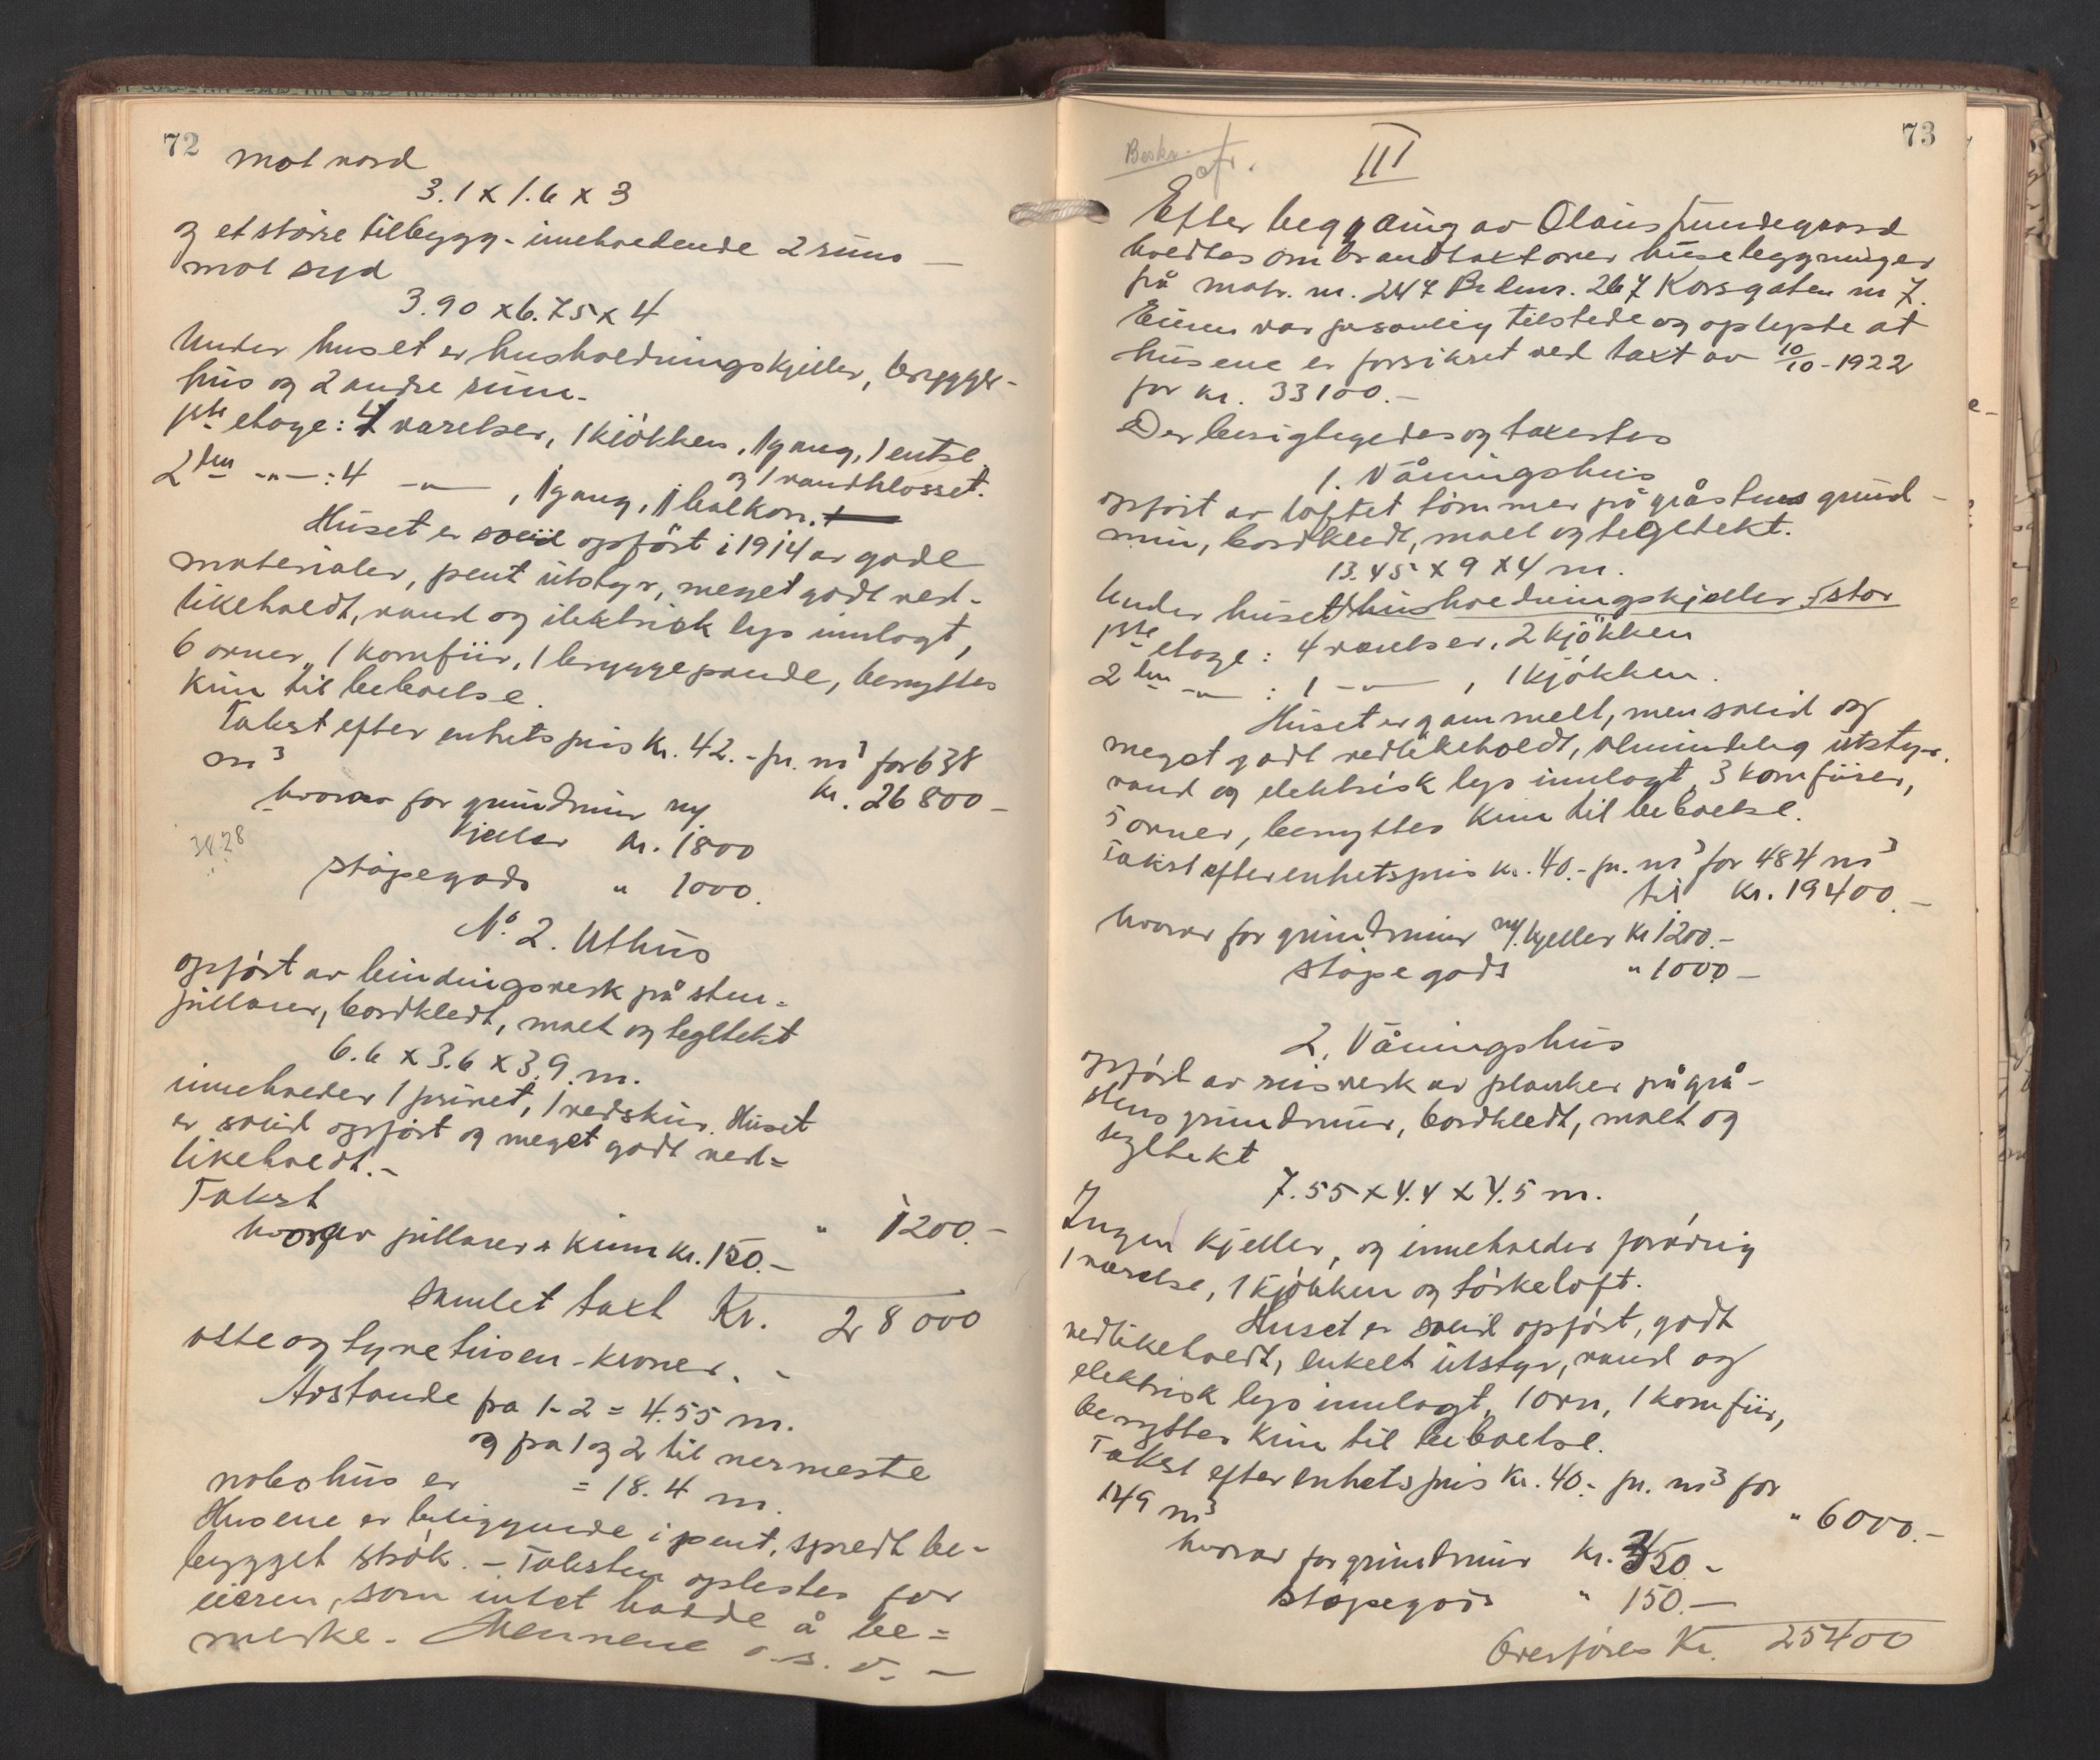 72
mot nord
3.1 x 1.6 x 3
og et større tilbygg - inneholdende 2 rum
mot syd
3.90 x 6.75 x 4
Under huset er husholdningskjeller, brygger-
hus og 2 andre rum.
1ste etage: 4 værelser, 1 kjökken, 1 gang, 1 entre
og 1 vandklosset.
2den -"-: 4 -"-, 1 gang, 1 balkon.
Huset er solid opfört i 1914 av gode
materialer, pent utstyr, meget godt ved-
likeholdt, vand og elektrisk lys innlagt,
6 ovner, 1 komfur, 1 bryggepande, benyttes
kun til beboelse.
Takst efter enhetspris kr. 42.- pr. m³ for 638
m³
kr. 26800 -
hvorav for grundmur m/
kjeller kr. 1800
38.28
støpegods " 1000.
No. 2. Uthus
opfört av bindingsverk på sten-
pillarer, bordkledt, malt og tegltekt
6.6 x 3.6 x 3.9. m.
inneholder 1 privet, 1 vedskur. Huset
er solid opfört og meget godt ved=
likeholdt.-
Takst
" 1200.-
hvorav pillarer kr. 150.-
Samlet taxt Kr. 28000
otte og tyve tusen - kroner. -
Avstande fra 1-2 = 4.55 m.
og fra 1 og 2 til nermeste
nabohus er = 18.4 m.
Husene er beliggende i pent, spredt be-
bygget strök. - Taksten oplestes for
eieren, som intet hadde å be=
merke. Mennene o.s.v. -
73
Beskr.
III
Efter begjæring av Olaus Lundegaard
holdtes ombrandtakst over husebygninger
på matr. nr. 247 Br. lnr. 267 Korsgaten nr 7.
Eieren var personlig tilstede og oplyste at
husene er forsikret ved taxt av 10/10-1922
for kr. 33100.-
Der besigtigedes og taxertes
1. Våningshus
opfört av laftet tömmer på gråstens grund-
mur, bordkledt, malt og tegltekt.
13.45 x 9 x 4 m.
Under huset husholdningskjeller, stor
1ste etage: 4 værelser, 2 kjökken
2den -"- : 1 -"- , 1 kjökken.
Huset er gammelt, men solid og
meget godt vedlikeholdt, almindelig utstyr,
vand og elektrisk lys innlagt, 3 komfurer,
5 ovner, benyttes kun til beboelse.
Takst efter enhetspris kr. 40.- pr. m³ for 484 m³
til kr. 19400.-
hvorav for grundmur m/. kjeller kr 1200.-
støpegods " 1000 -
2. Våningshus
opfört av reisverk av planker på grå-
stens grundmur, bordkledt, malt og
tegltekt
7.55 x 4.4 x 4.5 m.
Ingen kjeller, og inneholder forövrig
1 værelse, 1 kjökken og törkeloft.
Huset er solid opfört, godt
vedlikeholdt, enkelt utstyr, vand og
elektrisk lys innlagt, 1 ovn, 1 komfur,
benyttes kun til beboelse.
Takst efter enhetspris kr. 40.- pr. m³ for
149 m³
" 6000.-
hvorav for grundmur kr. 350.-
støpegods " 150.-
Overföres Kr. 25400